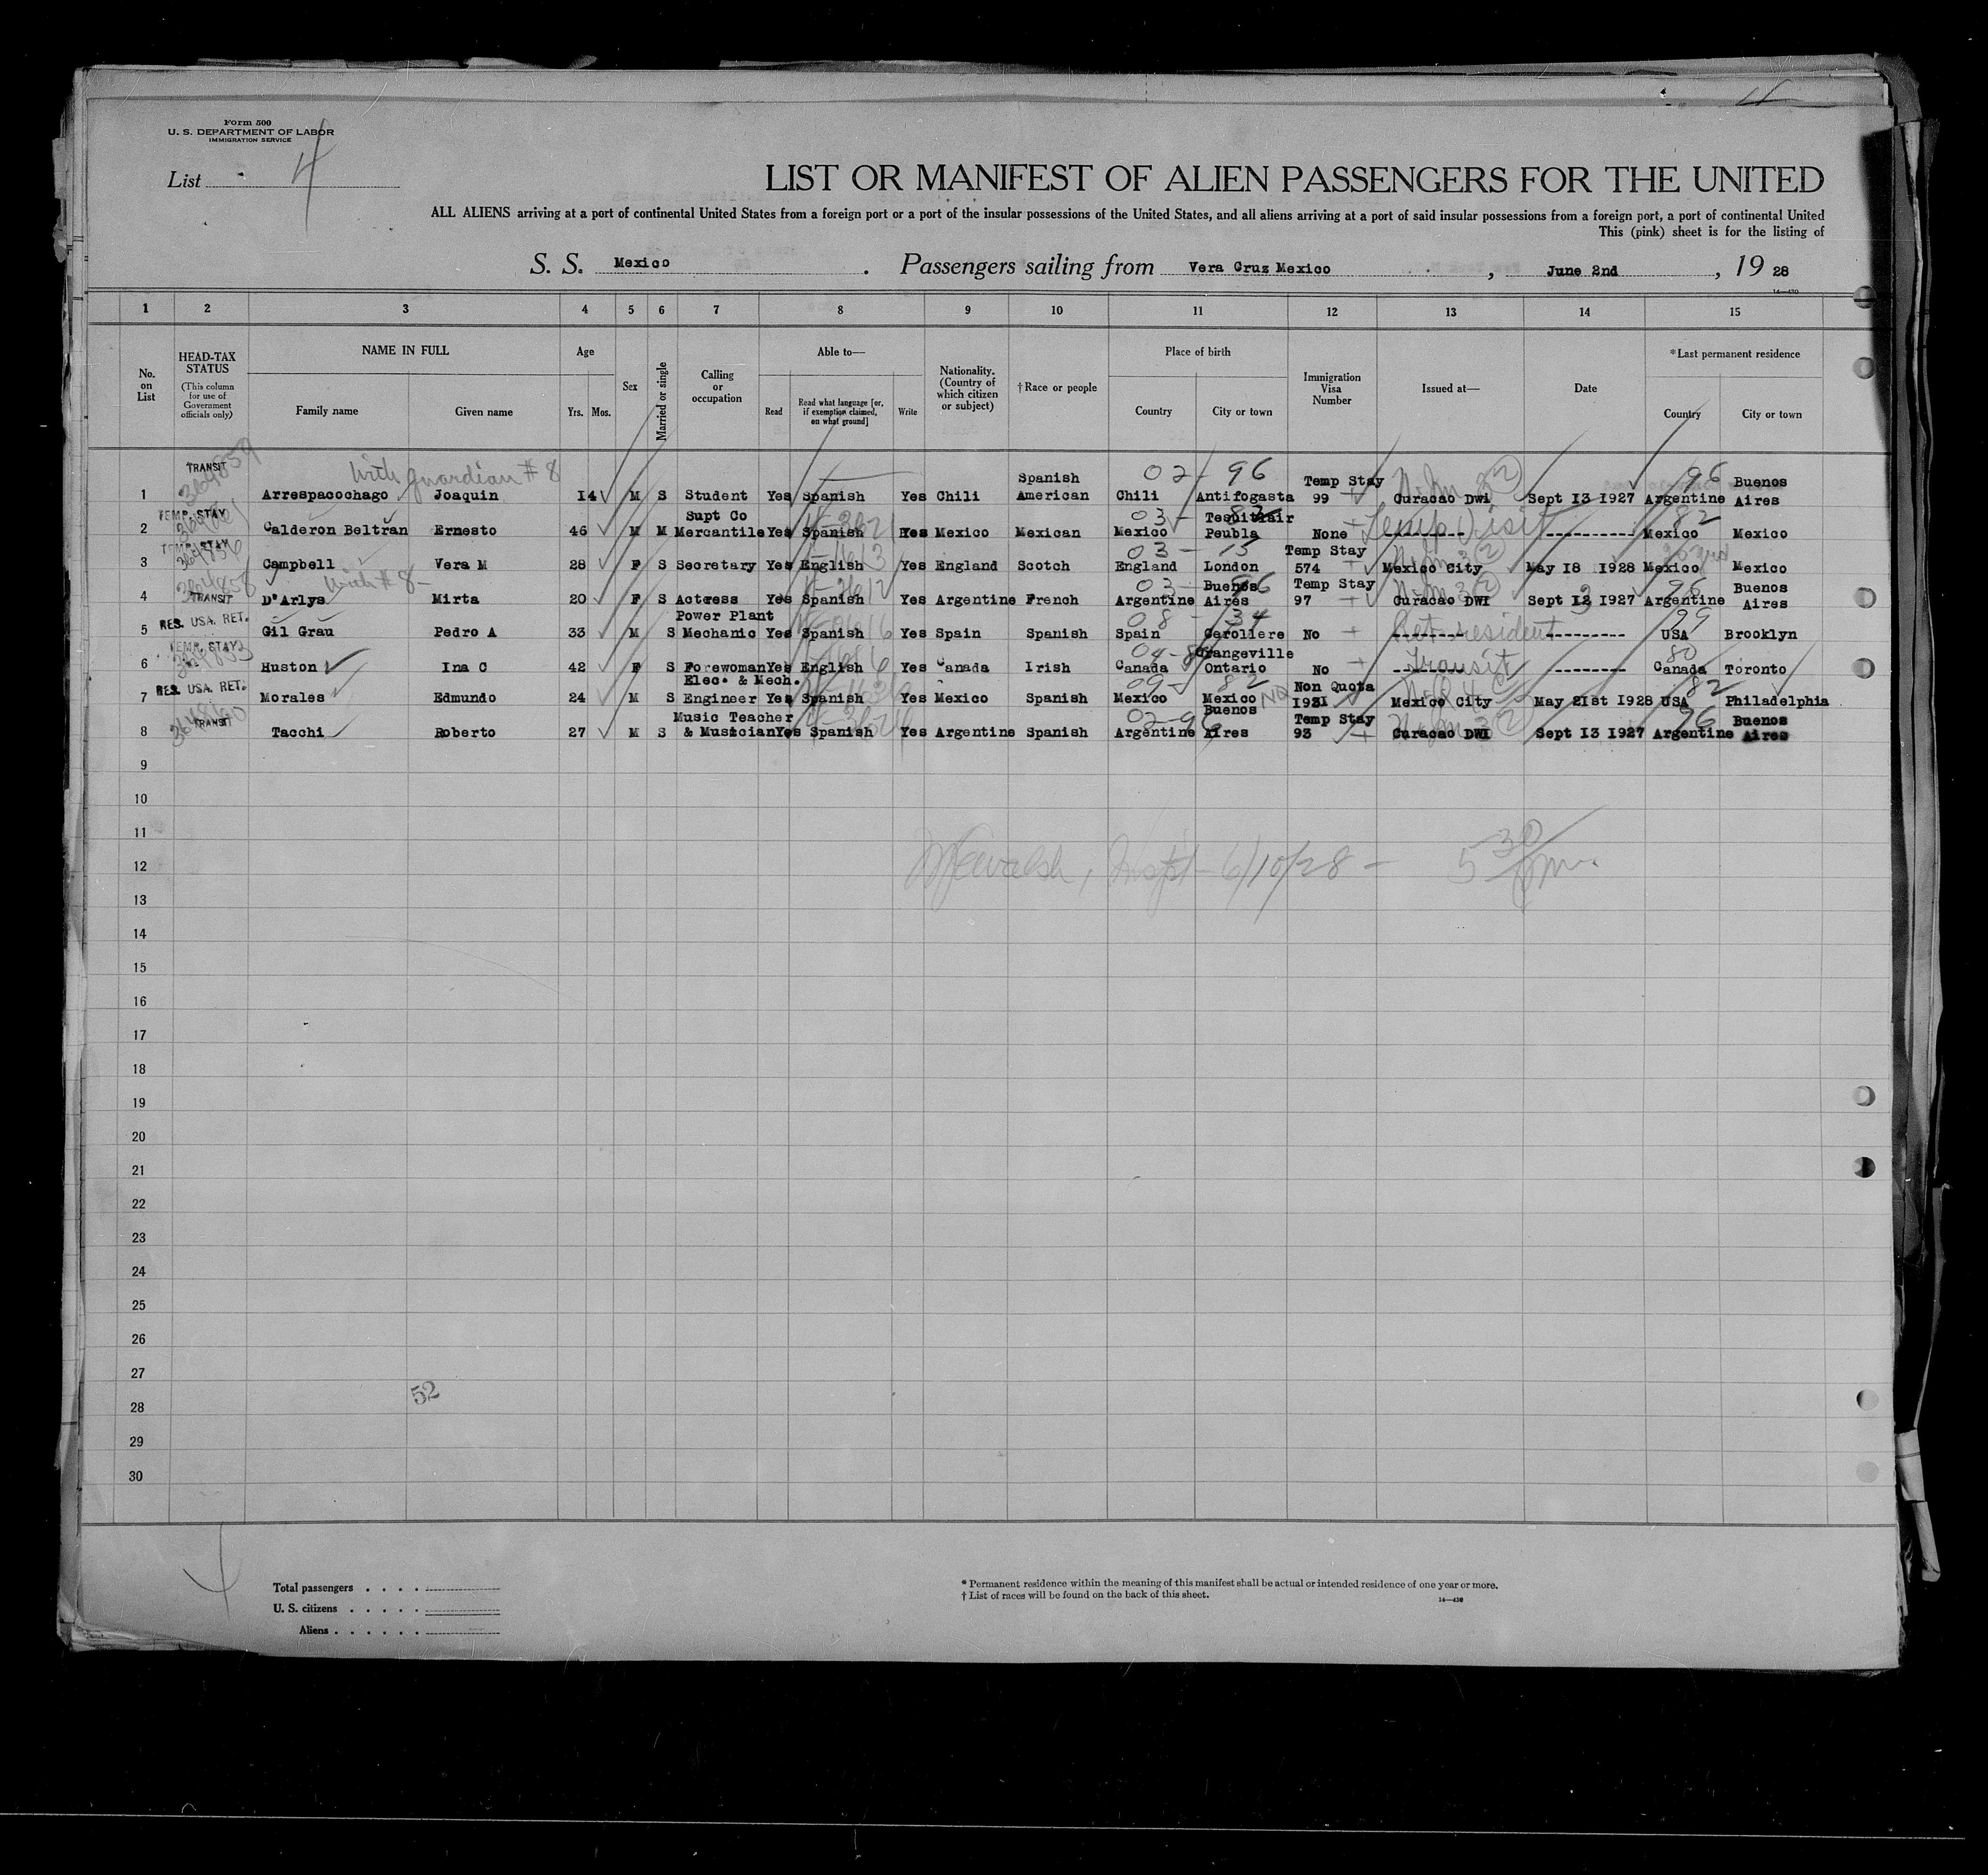 Form 500
U. S. DEPARTMENT OF LABOR
IMMIGRATION SERVICE
List 4
LIST OR MANIFEST OF ALIEN PASSENGERS FOR THE UNITED
ALL ALIENS arriving at a port of continental United States from a foreign port or a port of the insular possessions of the United States, and all aliens arriving at a port of said insular possessions from a foreign port, a port of continental United
This (pink) sheet is for the listing of
S. S. Mexico . Passengers sailing from Vera Cruz Mexico , June 2nd , 19 28
14—430
1 2 3 4 5 6 7 8 9 10 11 12 13 14 15
No. on List
HEAD-TAX STATUS
(This column for use of Government officials only)
NAME IN FULL
Family name Given name
Age
Yrs. Mos.
Sex
Married or single
Calling or occupation
Able to—
Read
Read what language [or, if exemption claimed, on what ground]
Write
Nationality. (Country of which citizen or subject)
†Race or people
Place of birth
Country City or town
Immigration Visa Number
Issued at—
Date
*Last permanent residence
Country City or town
with guardian # 8
02 - 96 96
1 TRANSIT 364859 Arrespacochago Joaquin 14 M S Student Yes Spanish Yes Chili Spanish American Chili Antifogasta Temp Stay 99 Curacao Dwi Sept 13 1927 Argentine Buenos Aires
2 TEMP. STAY Calderon Beltran Ernesto 46 M M Supt Co Mercantile Yes Spanish Yes Mexico Mexican Mexico Peubla None Temp Visit Mexico Mexico
03 - 15
3 TEMP. STAY 364856 Campbell Vera M 28 F S Secretary Yes English Yes England Scotch England London Temp Stay 574 Mexico City May 18 1928 Mexico Mexico
with # 8 -
4 364858 TRANSIT D'Arlys Mirta 20 F S Actress Yes Spanish Yes Argentine French Argentine Buenos Aires Temp Stay 97 Curacao DWI Sept 13 1927 Argentine Buenos Aires
08 - 34 99
5 RES. USA. RET. Gil Grau Pedro A 33 M S Power Plant Mechanic Yes Spanish Yes Spain Spanish Spain Caroliere No Ret resident USA Brooklyn
80
6 TEMP. STAY Huston Ina C 42 F S Forewoman Yes English Yes Canada Irish Canada Orangeville Ontario No Transit Canada Toronto
09 - 82 82
7 RES. USA. RET. Morales Edmundo 24 M S Elec. & Mech. Engineer Yes Spanish Yes Mexico Spanish Mexico Mexico Non Quota 1931 Mexico City May 21st 1928 USA Philadelphia
02 - 96 96
8 364860 TRANSIT Tacchi Roberto 27 M S Music Teacher & Musician Yes Spanish Yes Argentine Spanish Argentine Buenos Aires Temp Stay 93 Curacao DWI Sept 13 1927 Argentine Buenos Aires
9
10
11
12 Walsh, Inspt - 6/10/28 - 5 30 pm.
13
14
15
16
17
18
19
20
21
22
23
24
25
26
27
52
28
29
30
Total passengers . . . .
U. S. citizens . . . . .
Aliens . . . . . .
* Permanent residence within the meaning of this manifest shall be actual or intended residence of one year or more.
† List of races will be found on the back of this sheet.
14—430